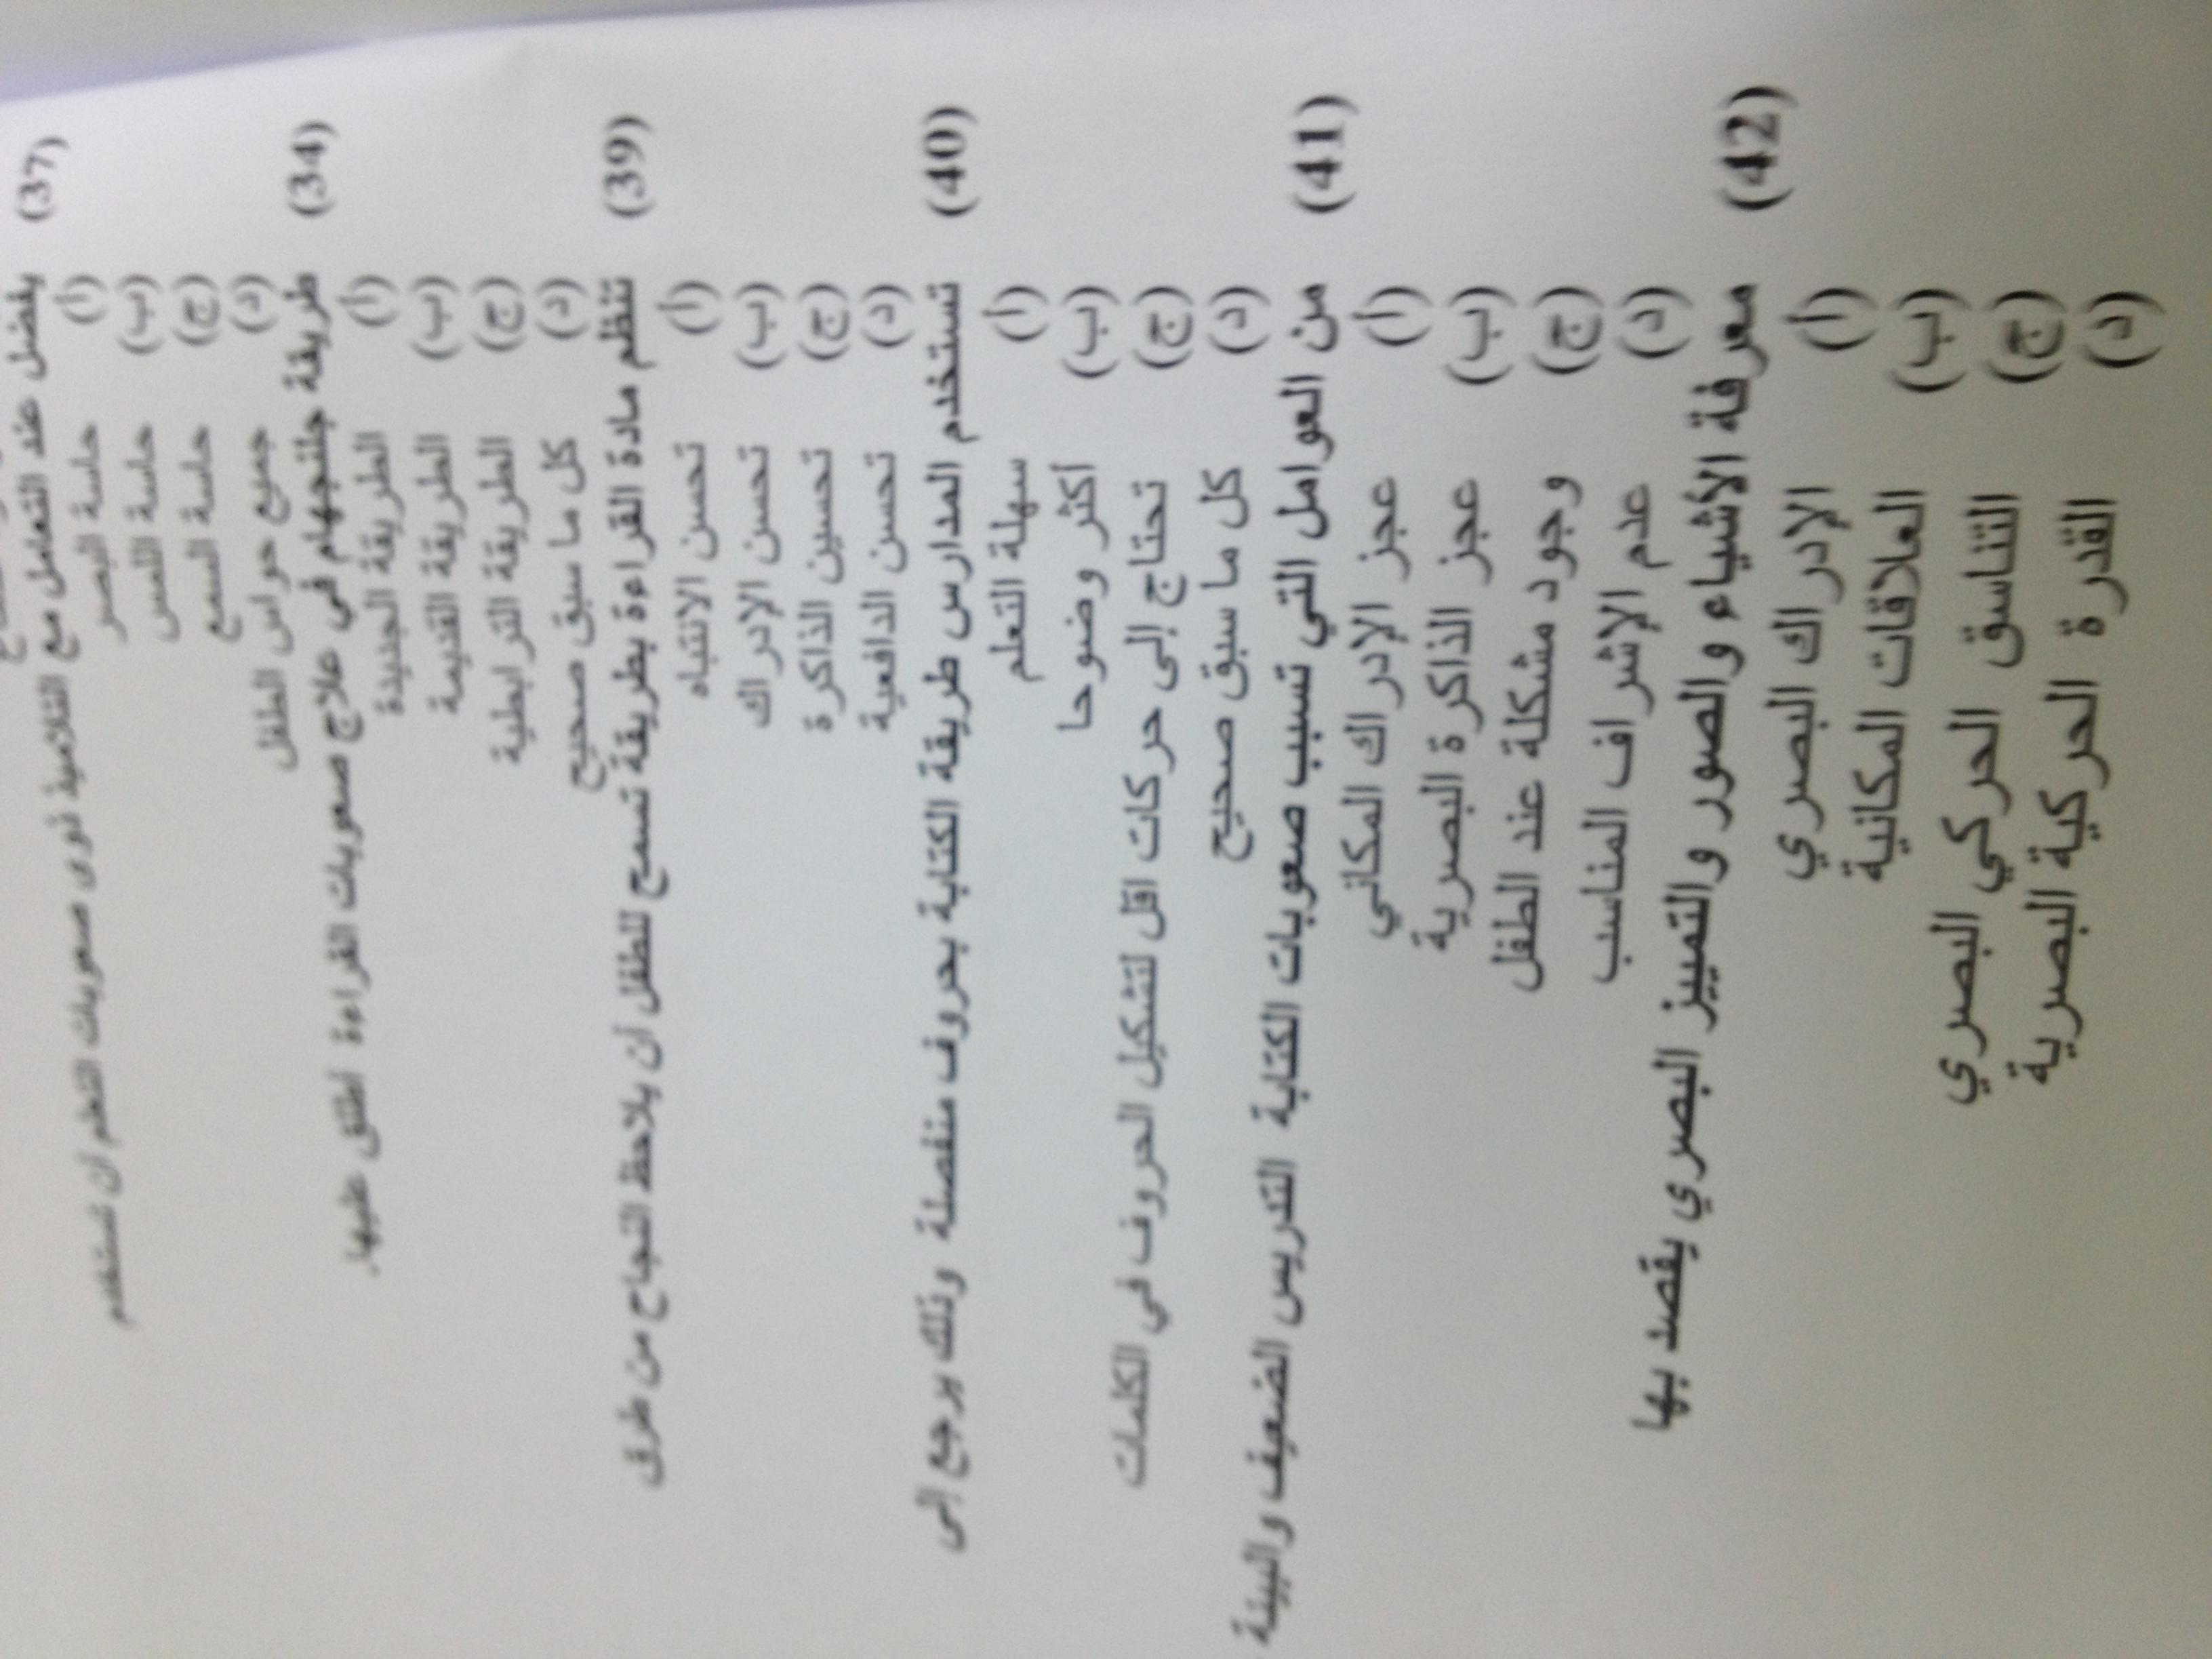 (37) يفضل عند التعامل مع التلاميذ ذوى صعوبات التعلم ان تستخدم
(أ) حاسة البصر
(ب) حاسة اللمس
(ج) حاسة السمع
(د) جميع حواس الطفل
(34) طريقة جلنجهام في علاج صعوبات القراءة اطلق عليها
(أ) الطريقة الجديدة
(ب) الطريقة القديمة
(ج) الطريقة الترابطية
(د) كل ما سبق صحيح
(39) تنظم مادة القراءة بطريقة تسمح للطفل أن يلاحظ النجاح من طرق
(أ) تحسن الانتباه
(ب) تحسن الإدراك
(ج) تحسين الذاكرة
(د) تحسن الدافعية
(40) تستخدم المدارس طريقة الكتابة بحروف منفصلة وذلك يرجع إلى
(أ) سهلة التعلم
(ب) أكثر وضوحا
(ج) تحتاج إلى حركات اقل لتشكيل الحروف في الكلمات
(د) كل ما سبق صحيح
(41) من العوامل التي تسبب صعوبات الكتابة التدريس الضعيف والبيئة
(أ) عجز الإدراك المكاني
(ب) عجز الذاكرة البصرية
(ج) وجود مشكلة عند الطفل
(د) عدم الإشراف المناسب
(42) معرفة الأشياء والصور والتمييز البصري يقصد بها
(أ) الإدراك البصري
(ب) العلاقات المكانية
(ج) التناسق الحركي البصري
(د) القدرة الحركية البصرية